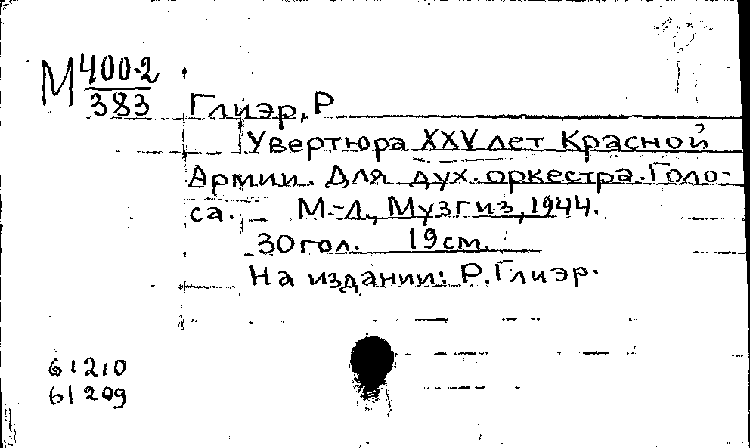 М 400-2
383
Глиэр, Р
Увертюра XXV лет Красной
Армии. Для дух. оркестра. Голо-
са. — М.-Л., Музгиз, 1944.
30 гол. 19 см.
На издании: Р. Глиэр.
61210
61209